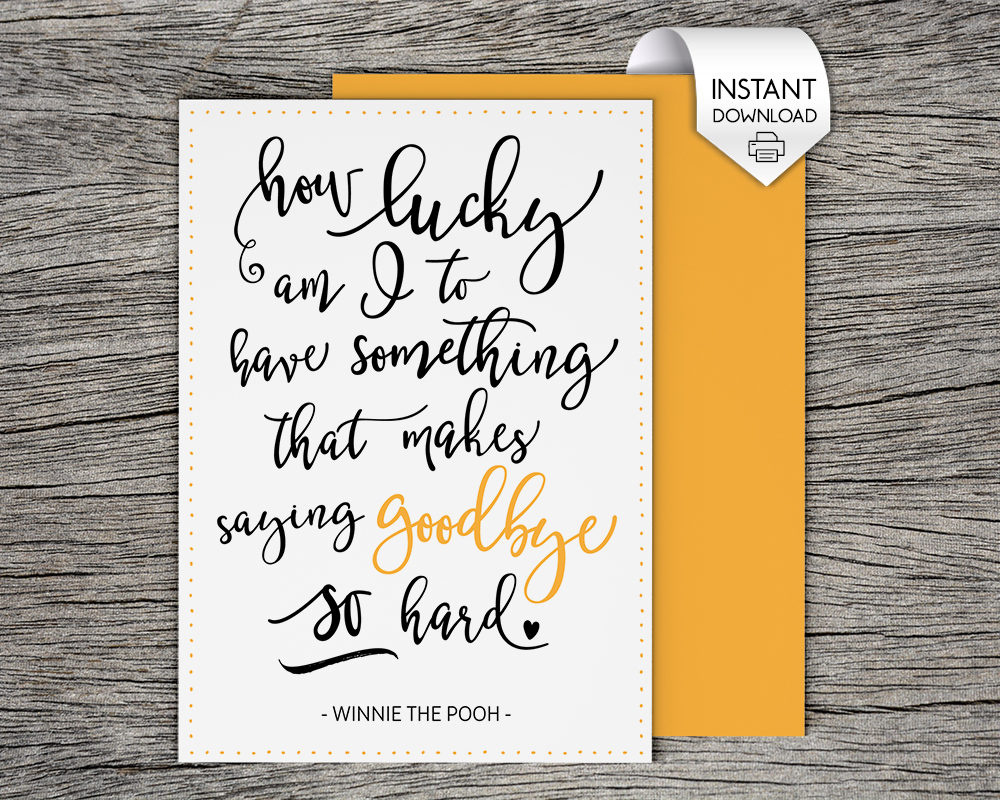 how lucky
am I to
have something
that makes
saying goodbye
so hard.
- WINNIE THE POOH -
INSTANT
DOWNLOAD